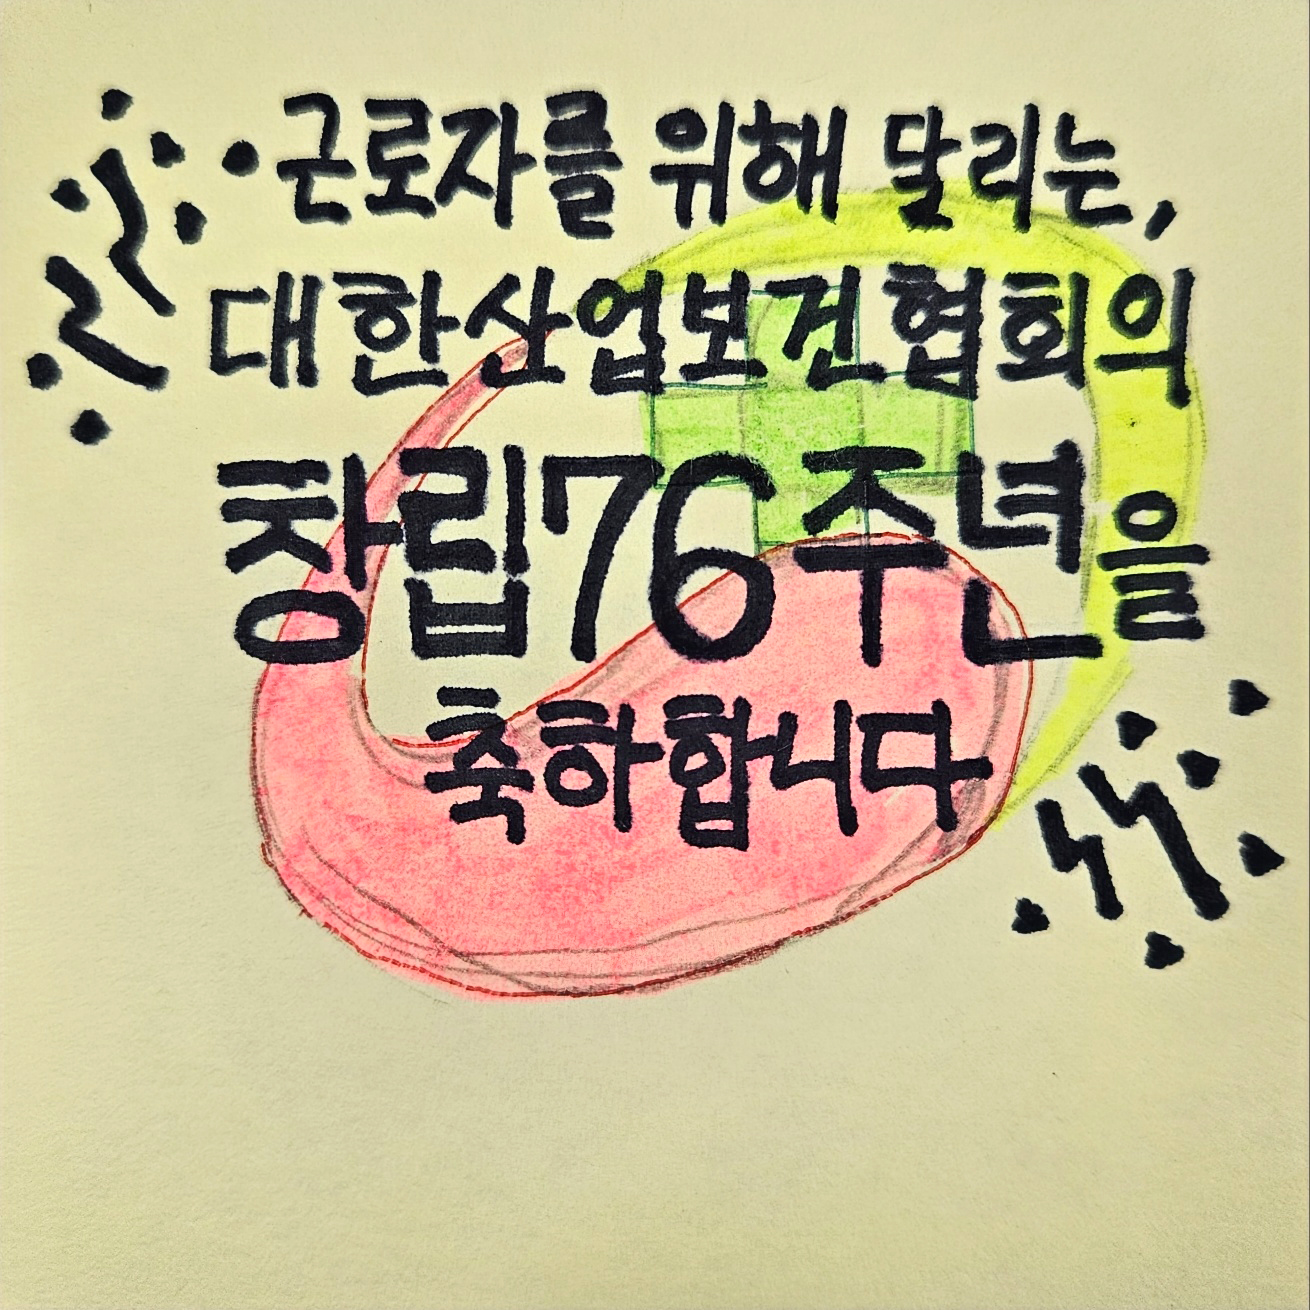 근로자를 위해 달리는,
대한산업보건협회의
창립76주년을
축하합니다